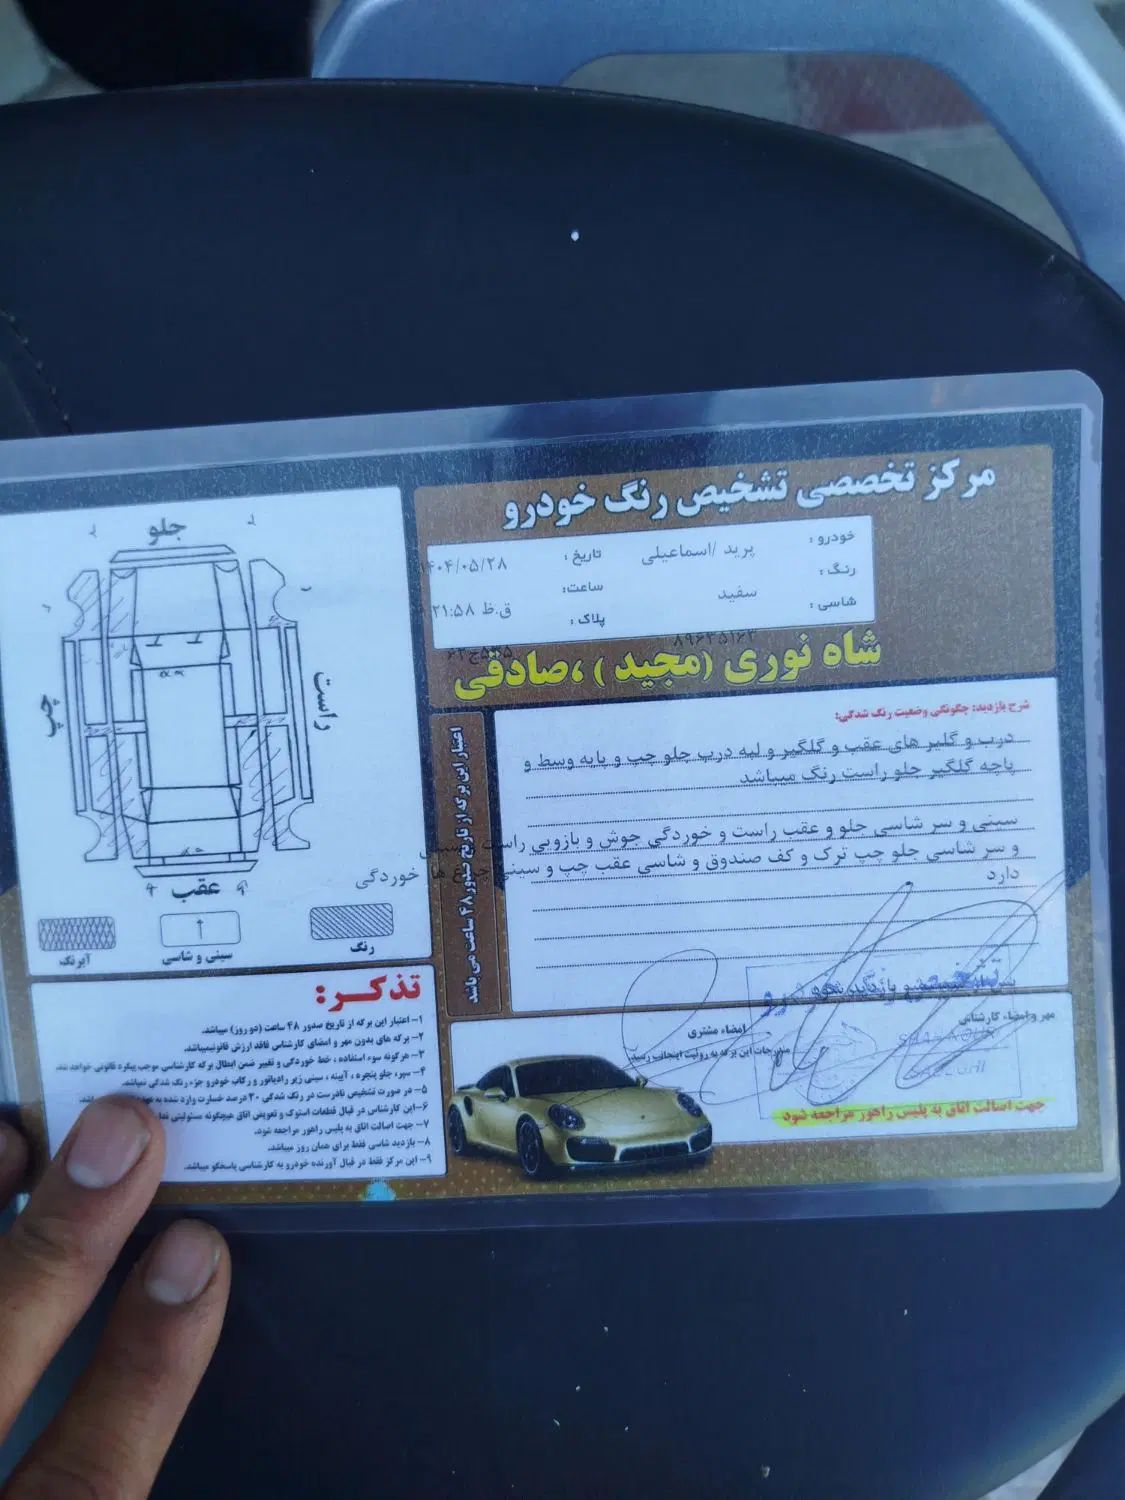 مرکز تخصصی تشخیص رنگ خودرو
خودرو :
پرید /اسماعیلی
تاریخ :
۱۴۰۴/۰۵/۲۸
رنگ :
سفید
ساعت:
۲۱:۵۸ ق.ظ
شاسی :
پلاک :
شاه نوری (مجید ) ،صادقی
شرح بازدید: چگونگی وضعیت رنگ شدگی:
درب و گلیر های عقب و گلگیر و لبه درب جلو چپ و پایه وسط و
پاچه گلگیر جلو راست رنگ میباشد
سینی و سر شاسی جلو و عقب راست و خوردگی جوش و بازویی راست
و سر شاسی جلو چپ ترک و کف صندوق و شاسی عقب چپ و سینی چراغ ها خوردگی
دارد
اعتبار این برگه از تاریخ صدور ۴۸ ساعت می باشد
جلو
راست
چپ
عقب
رنگ
سینی و شاسی
آبرنگ
تذکـر:
۱- اعتبار این برگه از تاریخ صدور ۴۸ ساعت (دو روز) میباشد.
۲- برگه های بدون مهر و امضای کارشناسی فاقد ارزش قانونیمیباشد.
۳- هرگونه سوء استفاده ، خط خوردگی و تغییر ضمن ابطال برگه کارشناسی موجب پیگرد قانونی خواهد شد.
۴- سپر، جلو پنجره ، آیینه ، سینی زیر رادیاتور و رکاب خودرو جزء رنگ شدگی نمیباشد.
۵- در صورت تشخیص نادرست در رنگ شدگی ۲۰ درصد خسارت وارد شده به
۶- این کارشناس در قبال قطعات استوک و تعویض اتاق هیچگونه مسئولیتی
۷- جهت اصالت اتاق به پلیس راهور مراجعه شود.
۸- بازدید شاسی فقط برای همان روز میباشد.
۹- این مرکز فقط در قبال آورنده خودرو به کارشناسی پاسخگو میباشد.
مهر و امضاء کارشناس
امضاء مشتری
مندرجات این برگه به رؤیت اینجانب رسید
جهت اصالت اتاق به پلیس راهور مراجعه شود